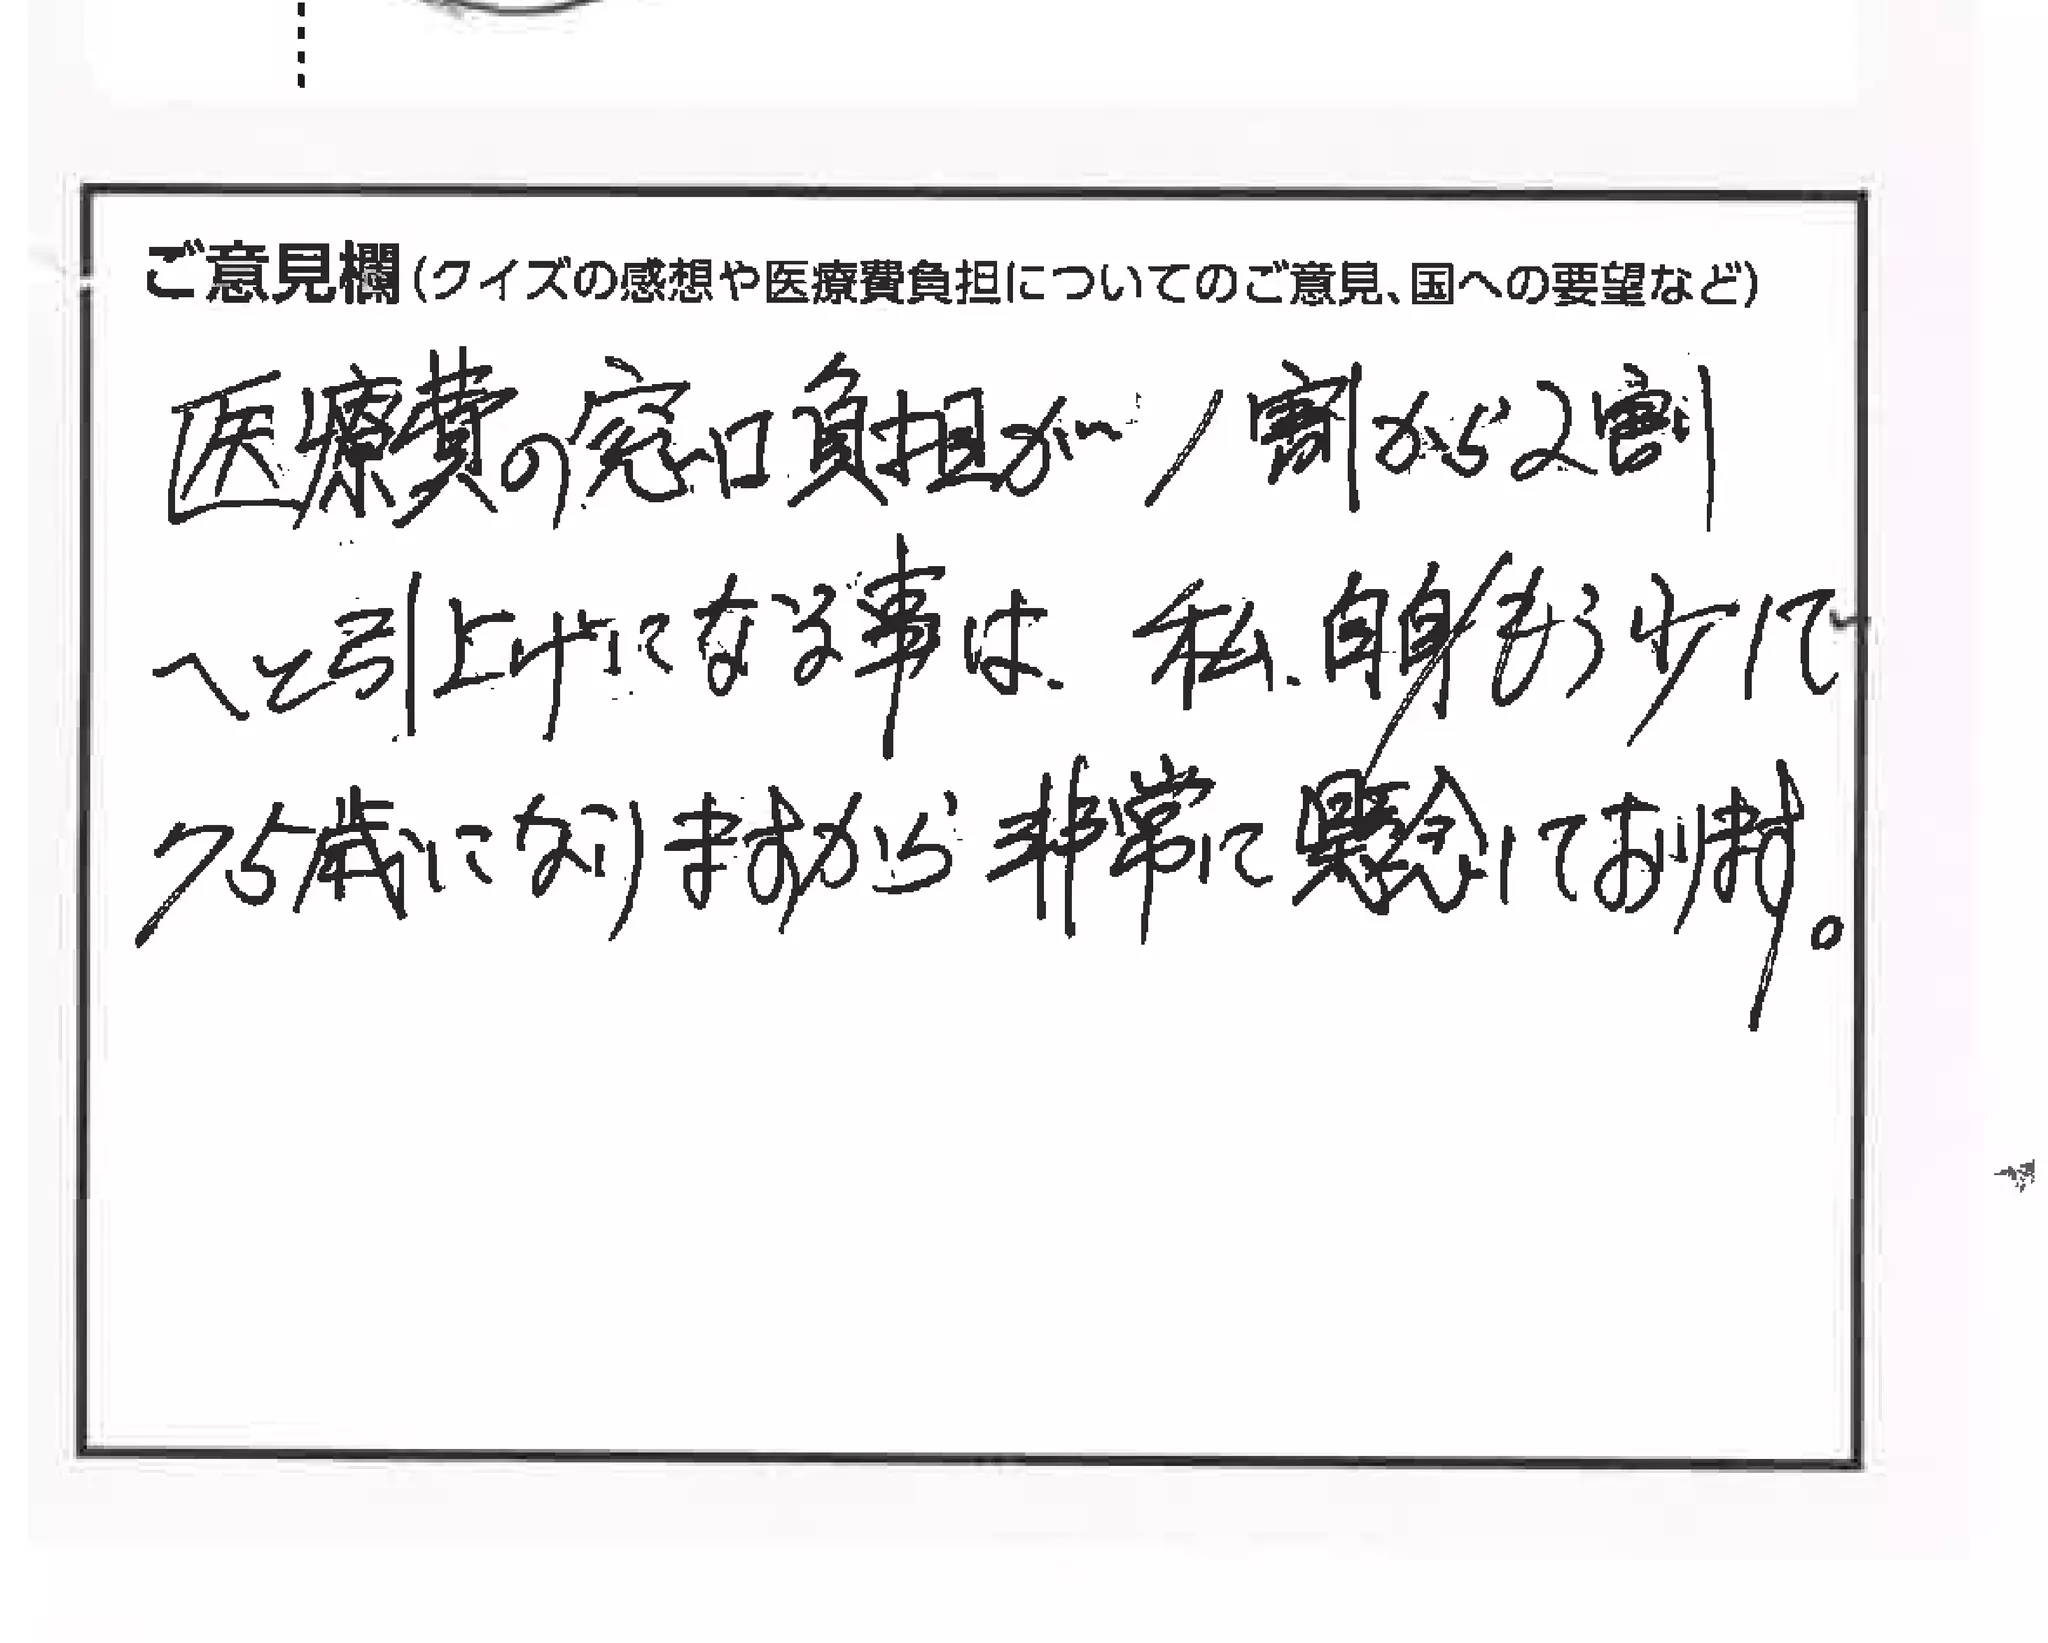 ご意見欄(クイズの感想や医療費負担についてのご意見、国への要望など)
医療費の窓口負担が1割から2割
へと引上げになる事は、私、自身もう少しで
75歳になりますから非常に懸念しております。